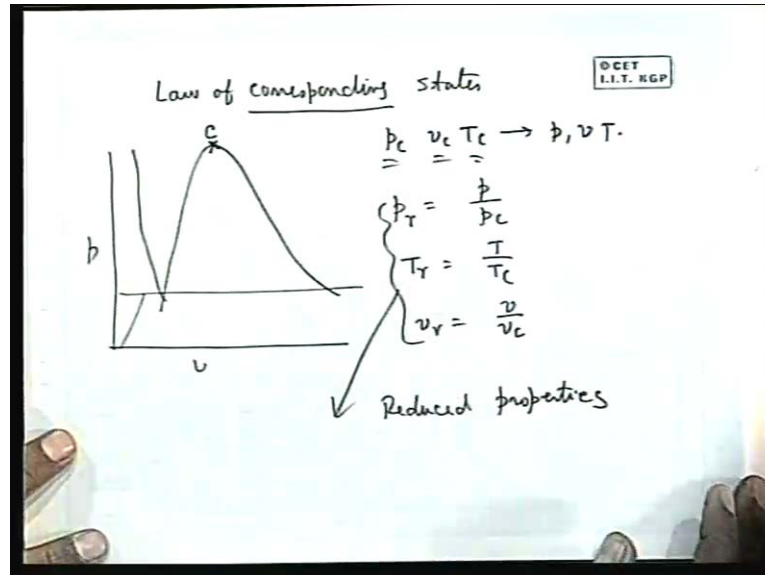 Law of corresponding states
© CET
I.I.T. KGP
C
p
v
pc vc Tc → p, v T.
pr = p/pc
Tr = T/Tc
vr = v/vc
Reduced properties